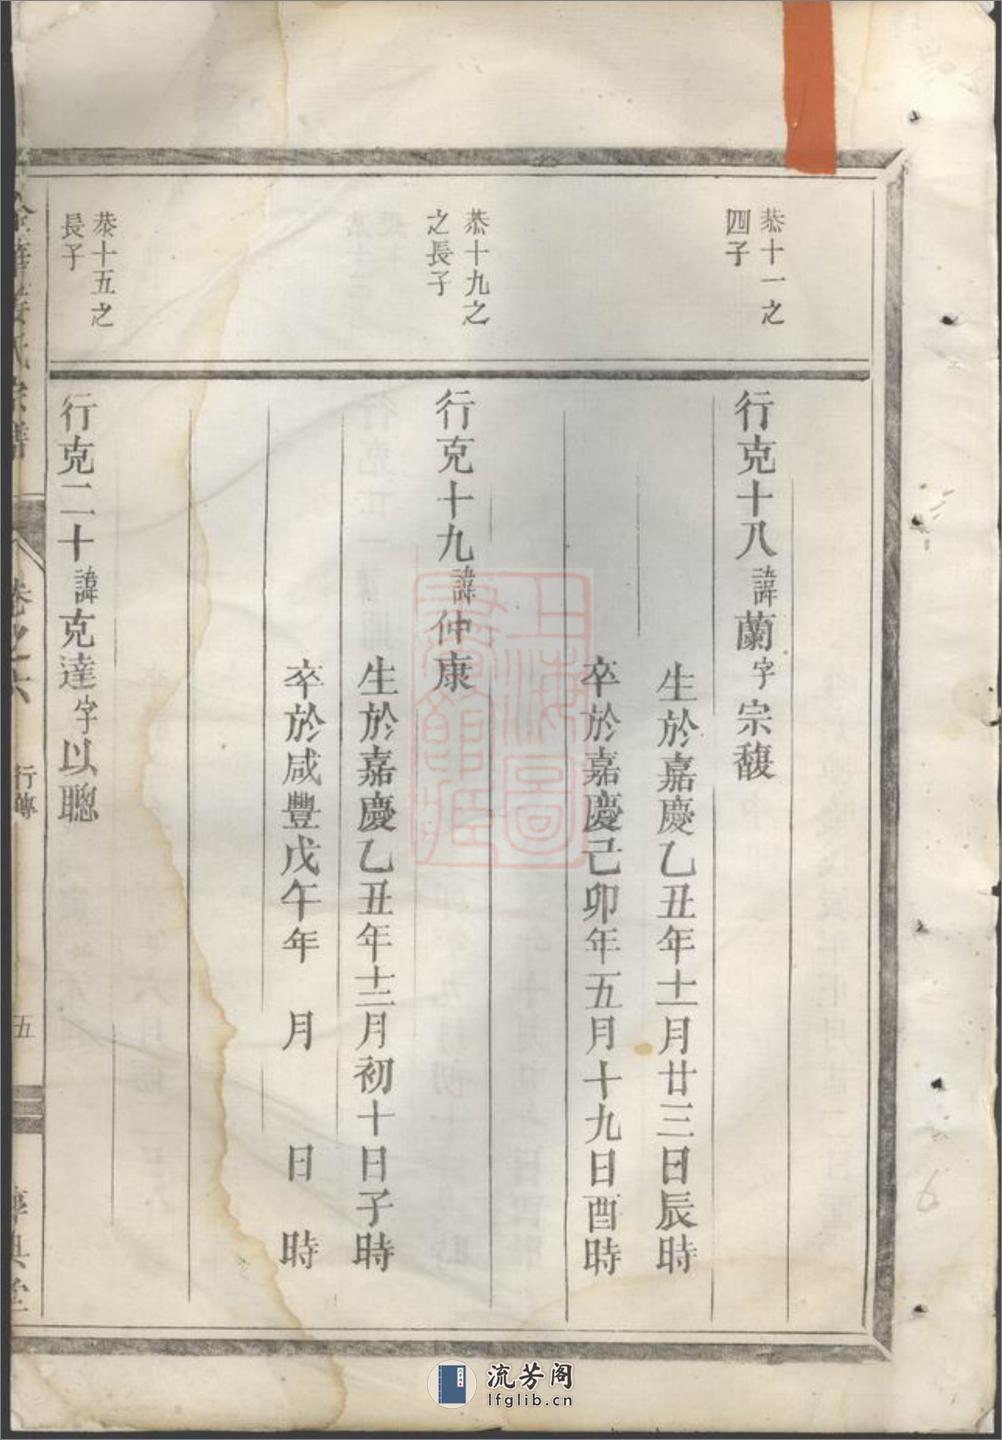 恭十一之
四子
行克十八諱蘭字宗馥
生於嘉慶乙丑年十一月廿三日辰時
卒於嘉慶己卯年五月十九日酉時
恭十九之
之長子
行克十九諱仲康
生於嘉慶乙丑年十二月初十日子時
卒於咸豐戊午年　月　日　時
恭十五之
長子
行克二十諱克達字以聰
氏宗譜
卷之六
行傳
五
上海圖書館藏
流芳阁
lfglib.cn